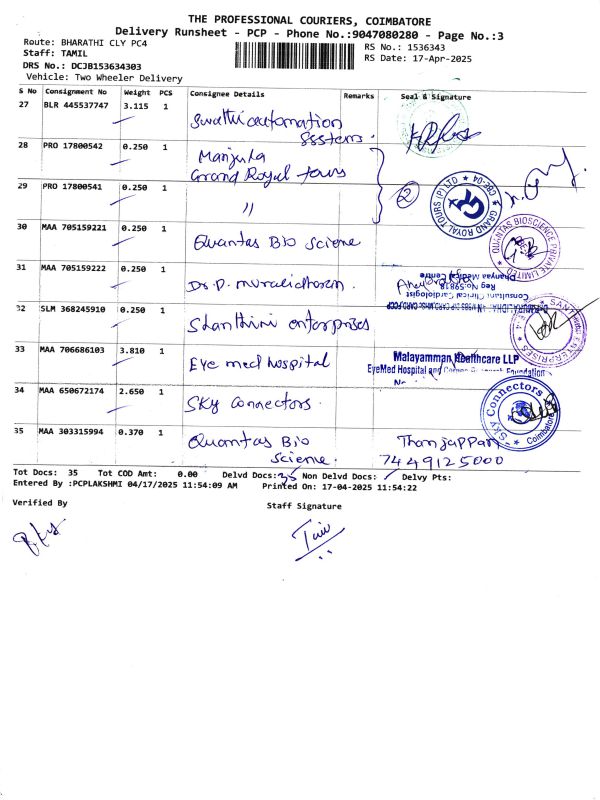 THE PROFESSIONAL COURIERS, COIMBATORE
Delivery Runsheet - PCP - Phone No.:9047080280 - Page No.:3
Route: BHARATHI CLY PC4
RS No.: 1536343
Staff: TAMIL
RS Date: 17-Apr-2025
DRS No.: DCJB153634303
Vehicle: Two Wheeler Delivery
S No Consignment No Weight PCS Consignee Details Remarks Seal & Signature
27 BLR 445537747 3.115 1 Swathi automation
SSstems.
28 PRO 17800542 0.250 1 Manjula
Grand Royal tours
29 PRO 17800541 0.250 1 "
2
GRAND ROYAL TOURS (P) LTD
CBE-04
30 MAA 705159221 0.250 1 Quantas Bio Sciene
QUANTAS BIOSCIENCE PRIVATE LIMITED
31 MAA 705159222 0.250 1 Dr. P. muralidharan.
Dhanyaa Medical Centre
Reg No: 59818
Consultant Clinical Cardiologist
32 SLM 368245910 0.250 1 Shanthini enterprises
33 MAA 706686103 3.810 1 Eye med hospital
Malayamman Healthcare LLP
EyeMed Hospital and Foundation
34 MAA 650672174 2.650 1 Sky Connectors.
Sky Connectors
Coimbatore
35 MAA 303315994 0.370 1 Quantas Bio
Sciene.
Thanjappan
7449125000
Tot Docs: 35 Tot COD Amt: 0.00 Delvd Docs: 35 Non Delvd Docs: Delvy Pts:
Entered By :PCPLAKSHMI 04/17/2025 11:54:09 AM Printed On: 17-04-2025 11:54:22
Verified By
Staff Signature